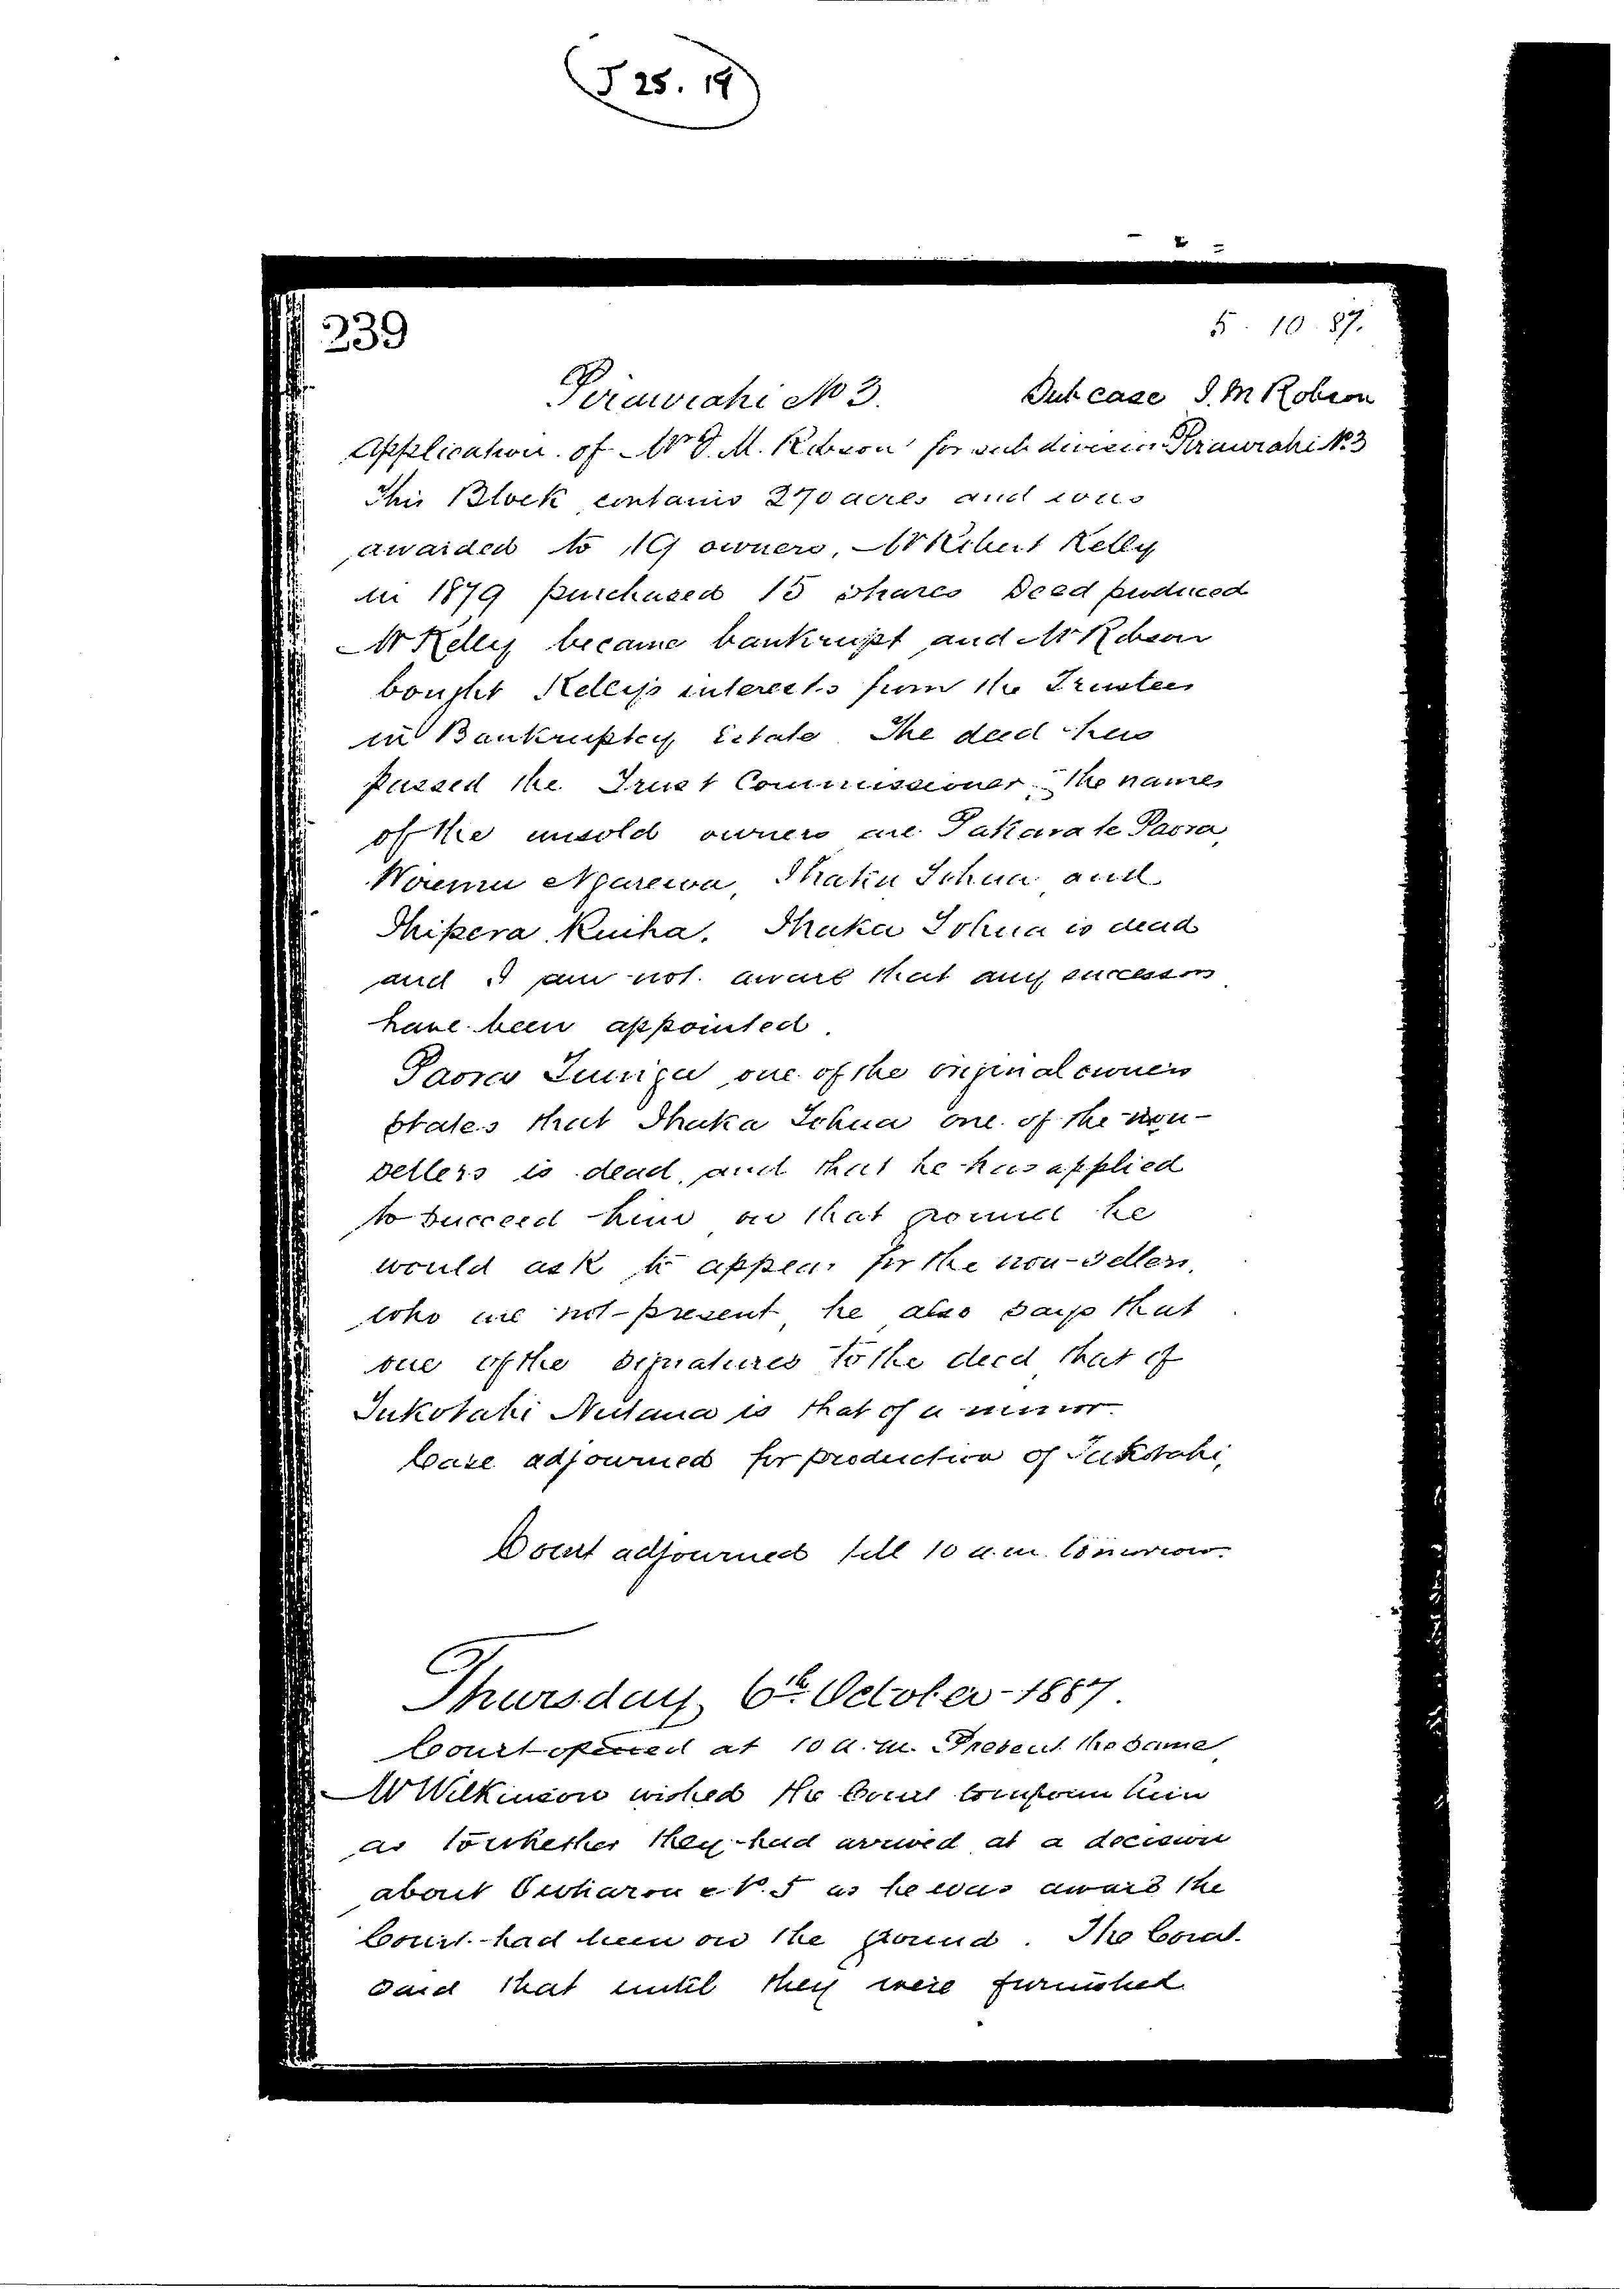 J 25. 19
239
5. 10. 87.
Pirauwahi No 3. Sub case J. M Robson
Application of Mr J. M. Robson for sub division Pirauwahi No 3
This Block contains 270 acres and was
awarded to 19 owners, Mr Robert Kelly
in 1879 purchased 15 shares Deed produced
Mr Kelly became bankrupt and Mr Robson
bought Kellys interests from the Trustees
in Bankruptcy Estate. The deed has
passed the Trust Commissioner. The names
of the unsold owners are Takana te Paora,
Wiremu Ngarewa, Ihaka Tohua and
Ihipera Kuiha. Ihaka Tohua is dead
and I am not aware that any successors
have been appointed.
Paora one of the original owners
states that Ihaka Tohua one of the non-
sellers is dead, and that he has applied
to succeed him on that ground he
would ask to appear for the non-sellers,
who are not present, he also says that
one of the signatures to the deed that of
Tukotahi is that of a minor.
Case adjourned for production of Tukotahi,
Court adjourned till 10 a.m. tomorrow.
Thursday, 6th October 1887.
Court opened at 10 a.m. Present the same
Mr Wilkinson wished the Court to inform him
as to whether they had arrived at a decision
about No. 5 as he was aware the
Court had been on the ground. The Court
said that until they were furnished